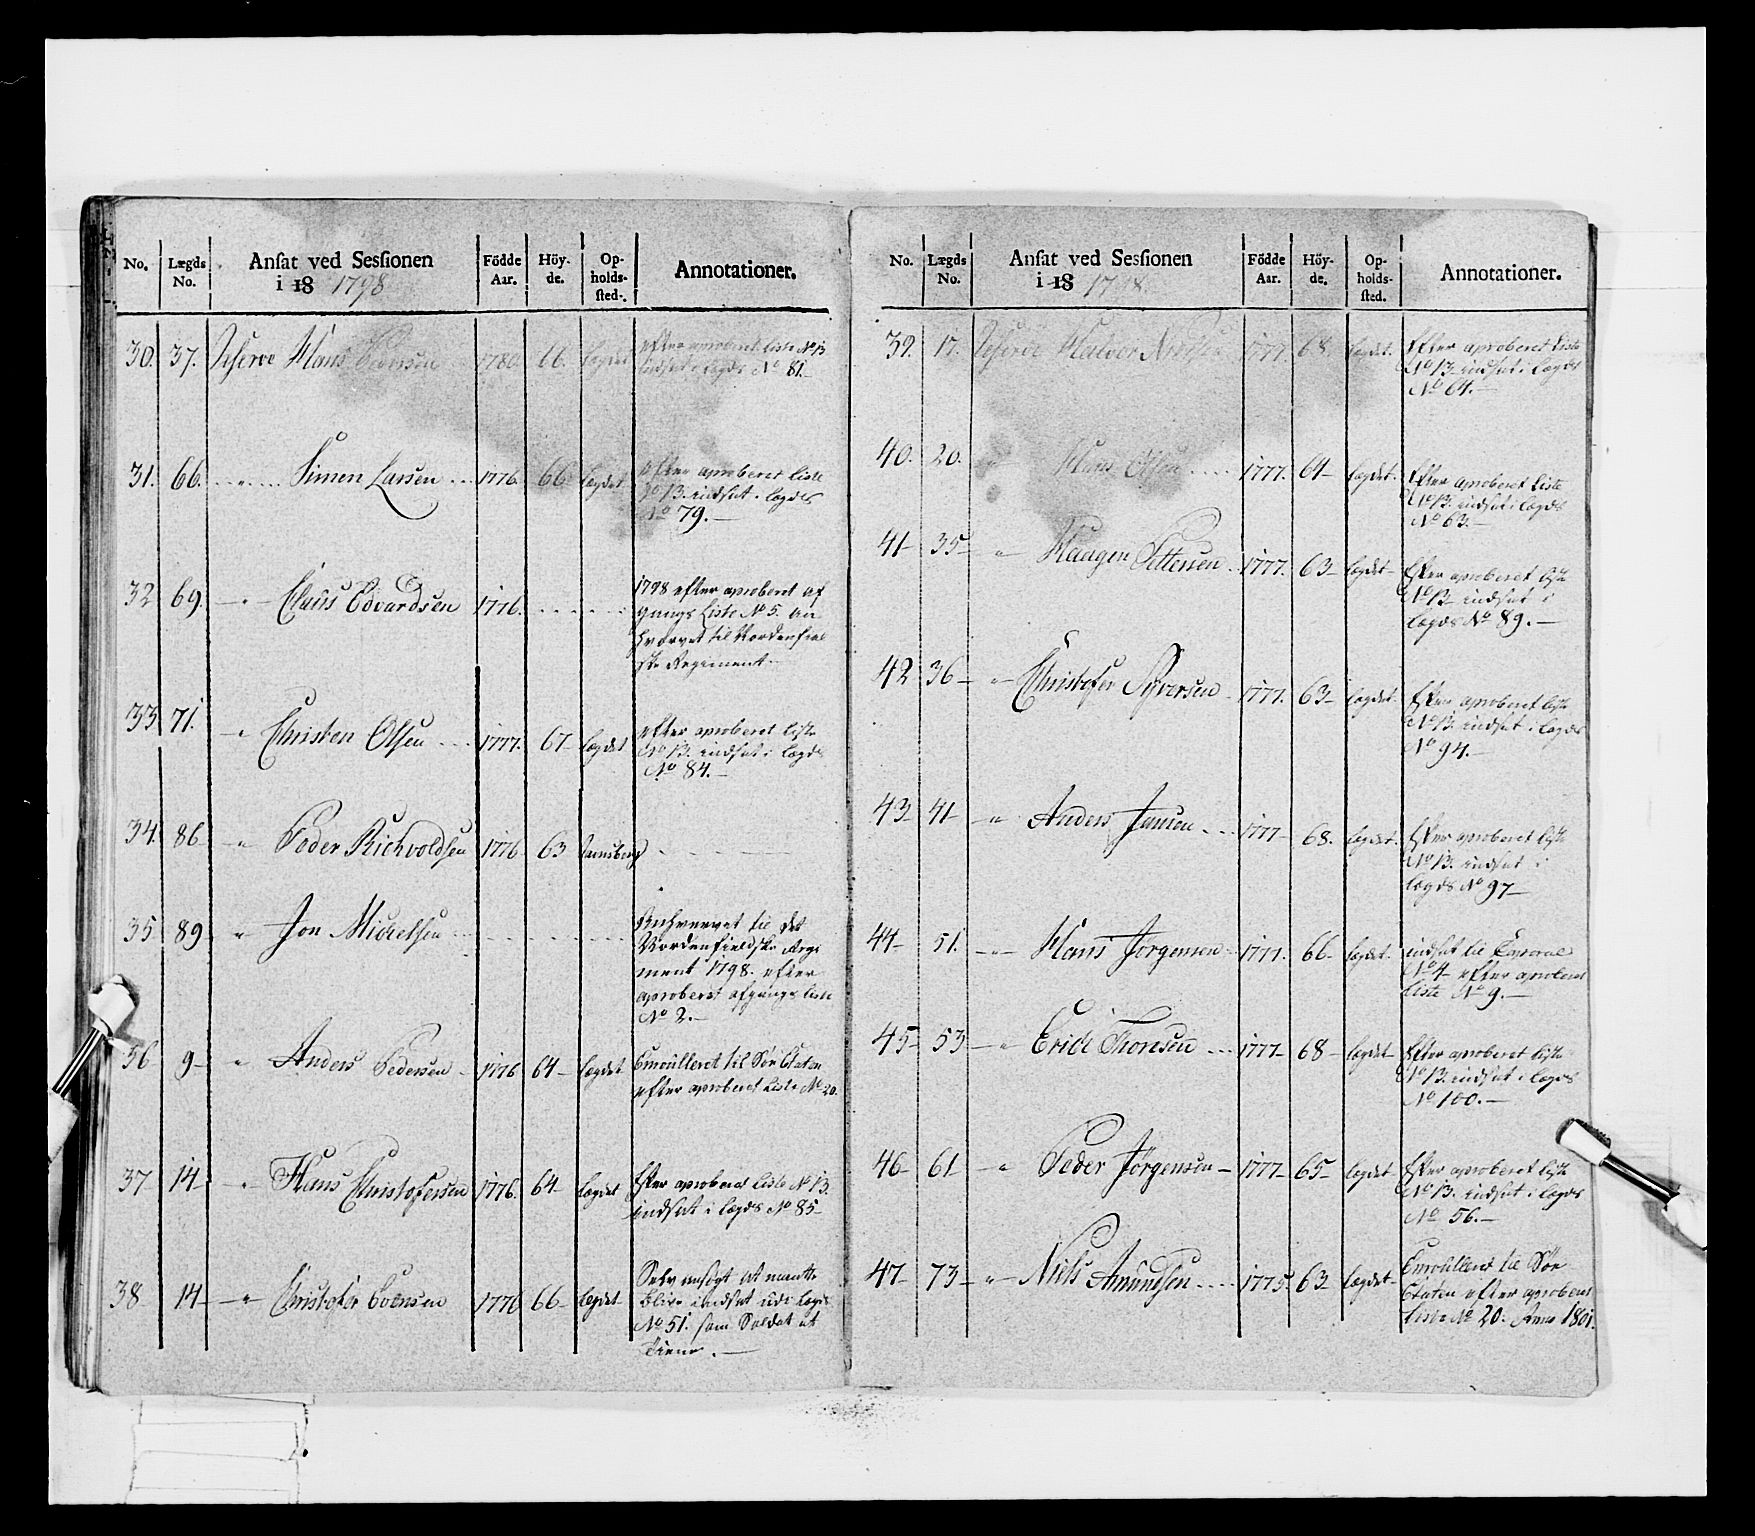 No. Lægds No. Ansat ved Sessionen i 18 1798 Födde Aar. Höyde. Opholdssted. Annotationer.
30. 37. Reserve Hans Evensen 1780. 66. Lægdet efter aproberet Liste No 13
indsat i Lægds No 81.
31. 66. " Simen Larsen 1776. 66 Lægdet efter aproberet Liste
No 13. indsat i Lægds
No 79.
32 69. " Claus Edvardsen 1776. 1798 efter aproberet af
gangs Liste No 5. an
hvervet til Nordenfiel
ske Regiment
33 71. " Christen Olsen 1777. 67 Lægdet efter aproberet Liste
No 13. indsat i Lægds
No 84.
34 86 " Peder Richvoldsen 1776 63
35 89 " Jon Michelsen Anhvervet til det
Nordenfieldske Regi
ment 1798. efter
aproberet afgangs Liste
No 2.
36 9 " Anders Pedersen 1776 64 Lægdet Enroulleret til Söe Etaten
efter aproberet Liste No 20.
37 14 " Hans Christofersen 1776. 64 Lægdet Efter aproberet Liste No 13.
indsat i Lægds No 85
38 14 " Christofer Evensen 1776 66 Lægdet Selv ansögt at maatte
blive indsat udi Lægds
No 51. som Soldat at
tiene.
No. Lægds No. Ansat ved Sessionen i 18 1798 Födde Aar. Höyde. Opholdssted. Annotationer.
39. 17. Reserve Halvor 1777. 68. Lægdet. Efter aproberet Liste
No 13 indsat i Lægds
No 64.
40. 20. " Hans Olsen 1777. 64 Lægdet. Efter aproberet Liste
No 13. indsat i Lægds
No 63.
41 35 " Haagen Pettersen 1777. 63 Lægdet Efter aproberet Liste
No 13 indsat i
Lægds No 89.
42 36 " Christofer Syversen 1777. 63 Lægdet. Efter aproberet Liste
No 13. indsat i Lægds
No 94.
43 41 " Anders Jansen 1777 68. Lægdet. Efter aproberet Liste
No 13. indsat i
Lægds No 97
44 51. " Hans Jörgensen 1777. 66 Lægdet. indsat til Corporal
No 4 efter aproberet
Liste No 9.
45 53 " Erich Thorsen 1777 68 Lægdet Efter aproberet Liste
No 13. indsat i Lægds
No 100.
46 61 " Peder Jörgensen 1777 65 Lægdet Efter aproberet Liste
No 13. indsat i Lægds
No 56.
47 73 " Niels Amundsen 1775. 63 Lægdet Enroulleret til Söe
Etaten efter aproberet
Liste No 20. Anno 1801.